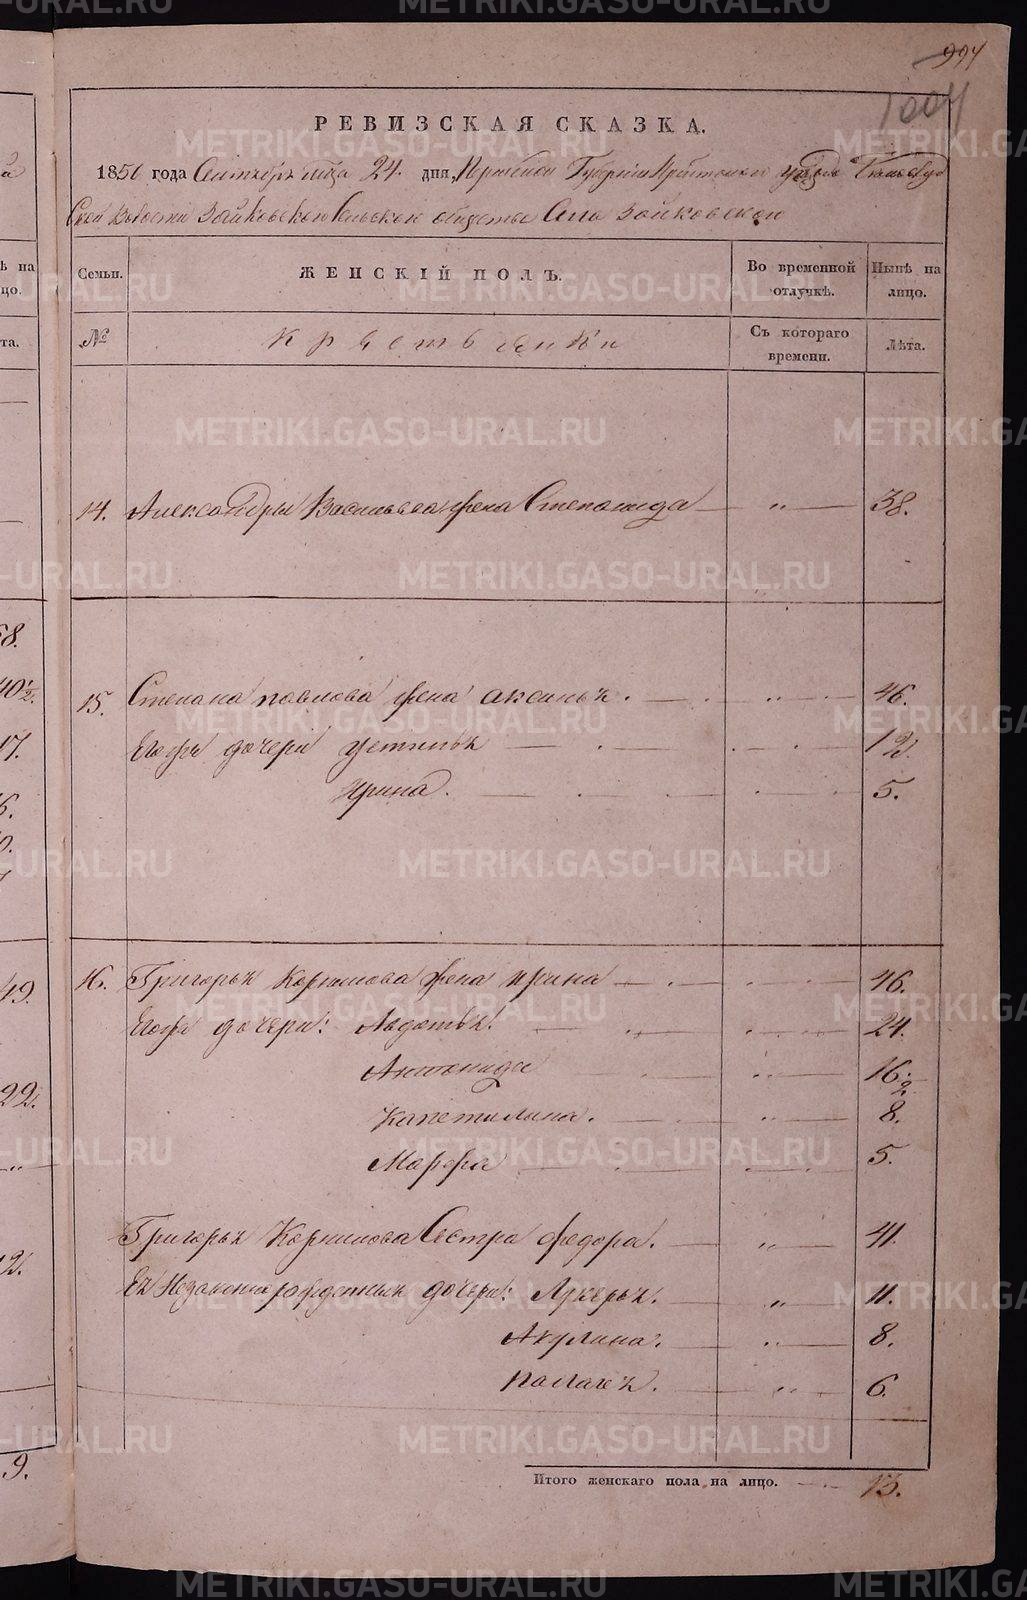 994
1004
РЕВИЗСКАЯ СКАЗКА.
1850 года Сентября м-ца 24. дня, Пермской Губернии Ирбитскаго уѣзда Бѣлослуд
ской волости Зайковской Сельской общества Села Зайковской
Семьи. ЖЕНСКІЙ ПОЛЪ. Во временной отлучкѣ. Нынѣ на лицо.
№ Крестьянки Съ котораго времени. Лѣта.
14. Александры Васильева жена Степанида — „ — 38.
15. Степана павлова жена аксинья. — „ — 46.
Егожъ дочери устинья — 12
Ирина. — 5.
16. Григорья Корнилова жена ирина — „ — 46.
Егожъ дочери: Авдотья. — „ — 24.
Антонида — „ — 16 ½
Капетилина. — „ — 8.
Марфа — „ — 5.
Григорья Корнилова Сестра федора. — „ — 41.
Ея Незаконнорожденныя дочери: Лукерья. — „ — 11.
Акулина. — „ — 8.
палагея. — „ — 6.
Итого женскаго пола на лицо. — 13.
й
ѣ на
цо.
та.
58.
40½.
17.
49.
22.
12.
9.
METRIKI.GASO-URAL.RU